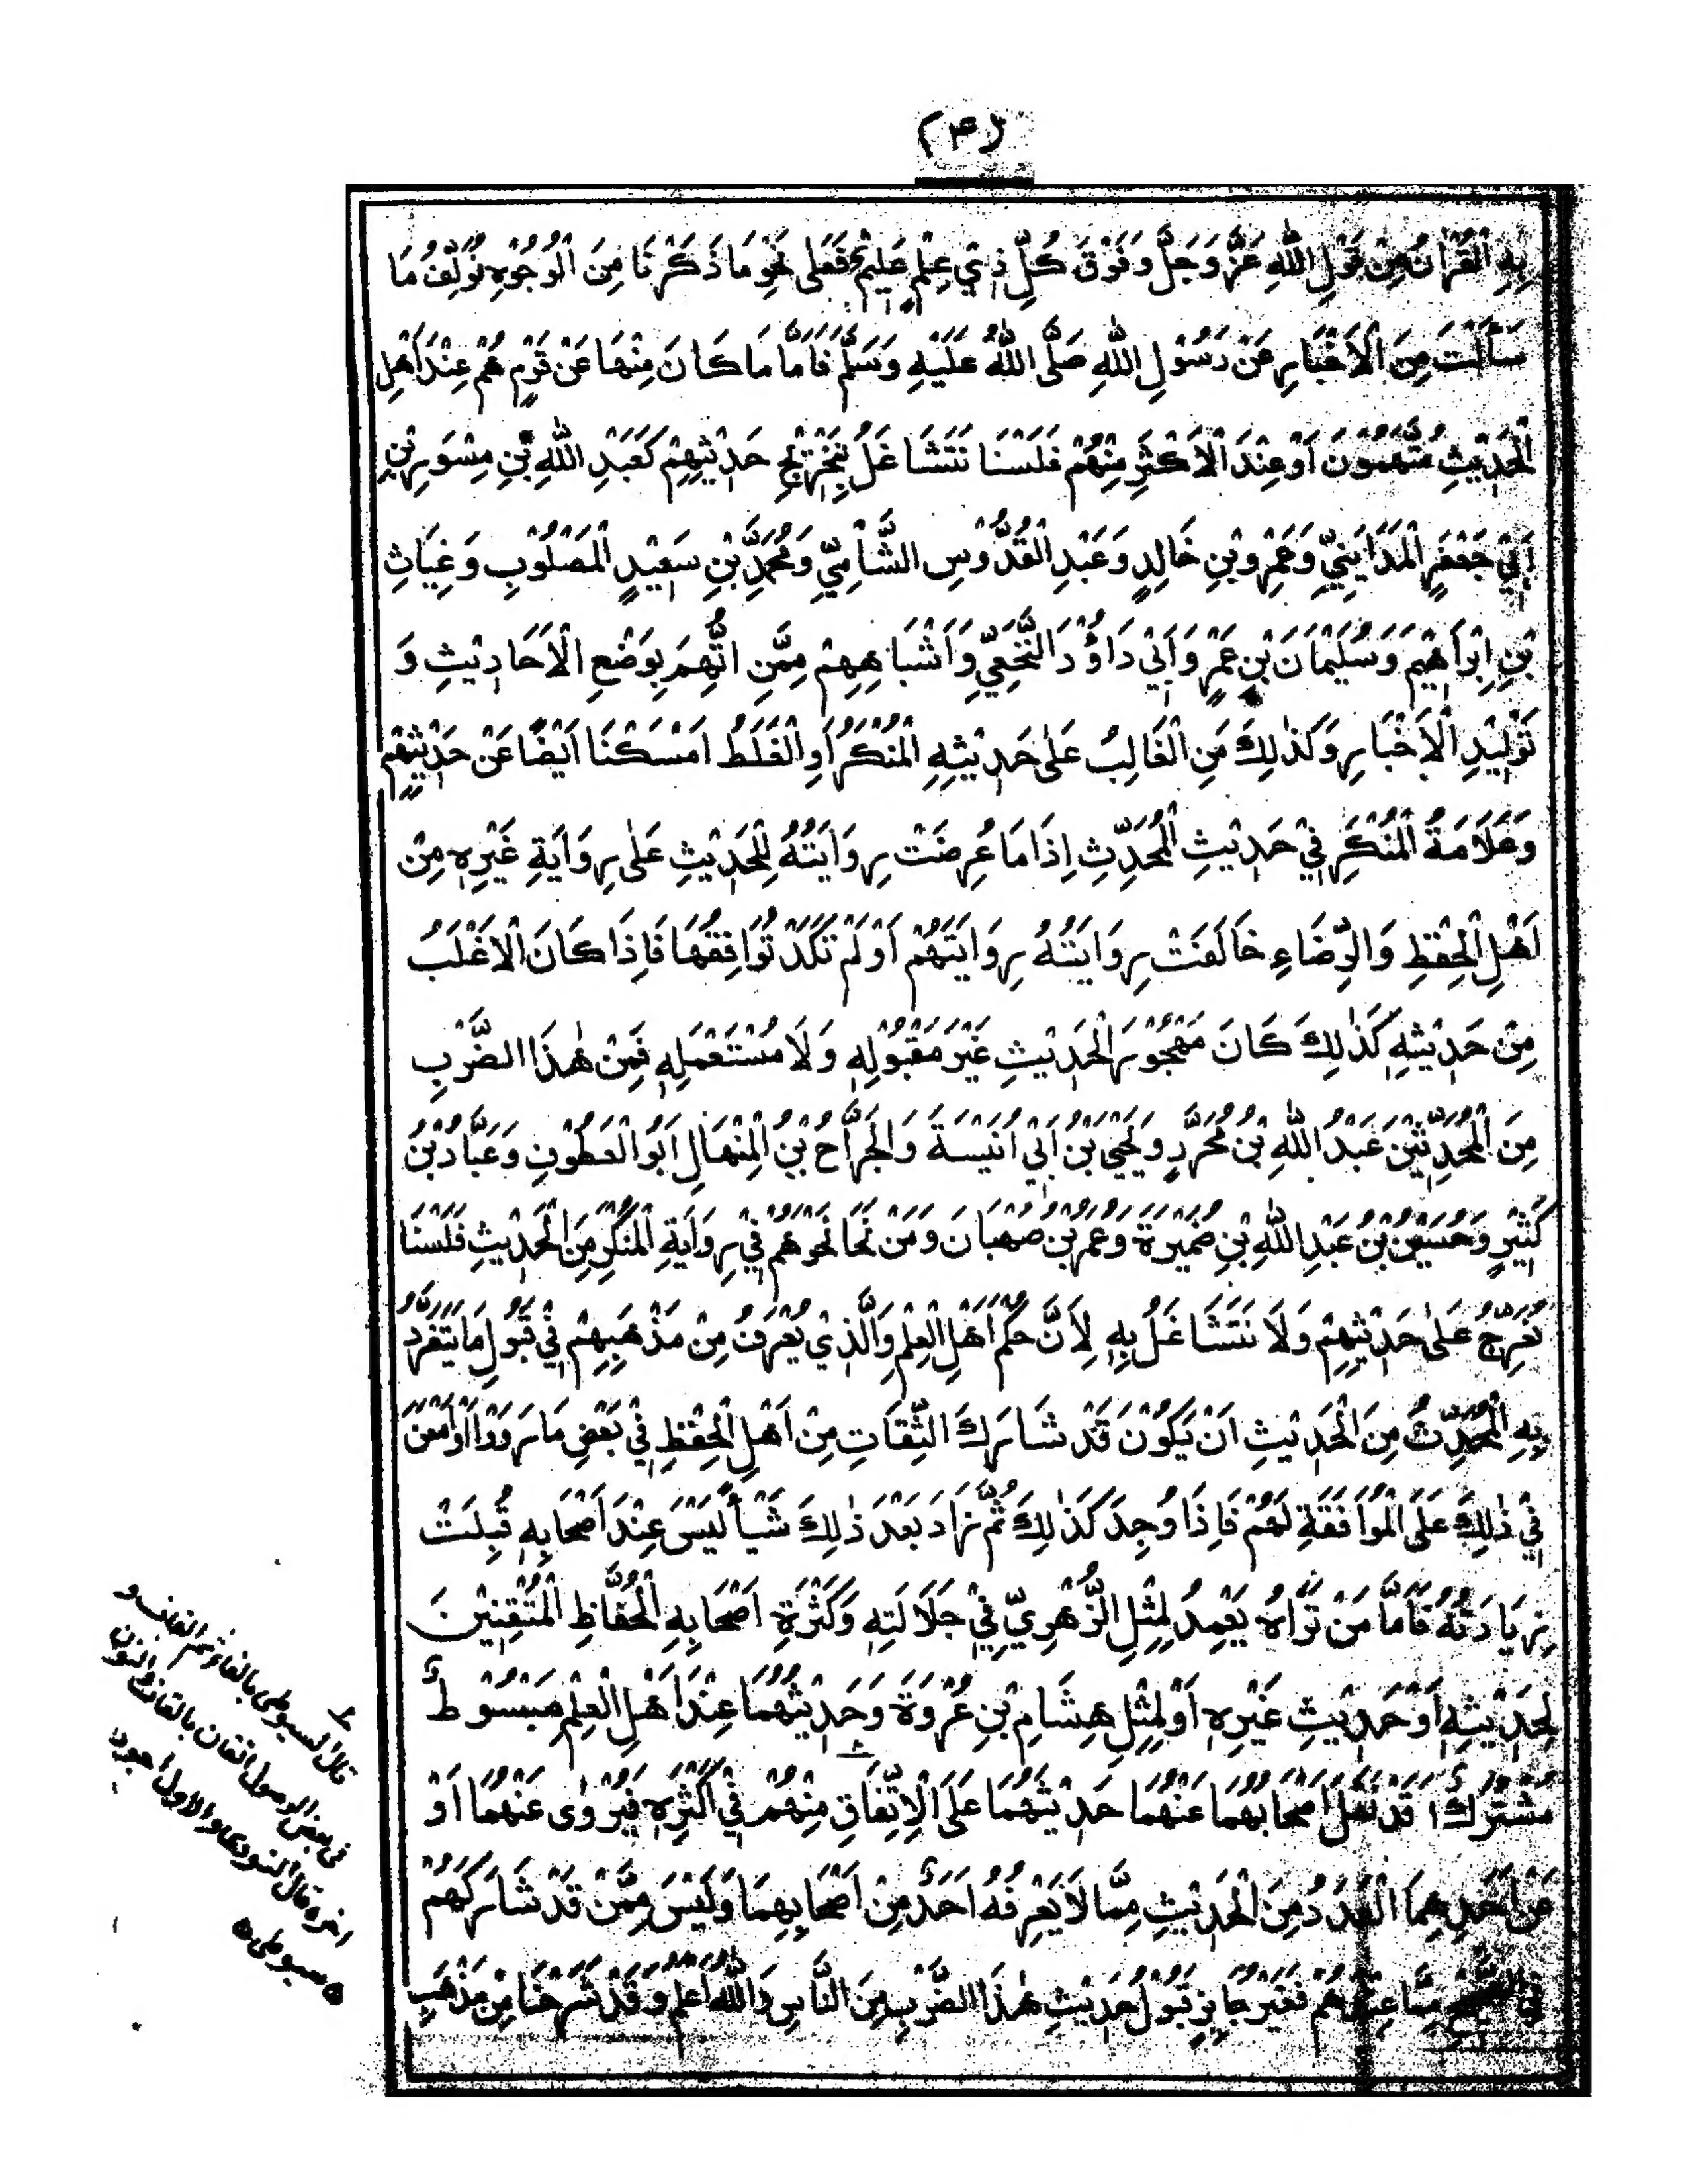 (۴)
بِهِ الْقُرْاٰنُ مِنْ قَوْلِ اللّٰهِ عَزَّ وَجَلَّ وَفَوْقَ كُلِّ ذِيْ عِلْمٍ عَلِيْمٌ فَعَلٰى نَحْوِ مَا ذَكَرْنَا مِنَ الْوُجُوْهِ نُؤَلِّفُ مَا
سَأَلْتَ مِنَ الْاَخْبَارِ عَنْ رَسُوْلِ اللّٰهِ صَلَّى اللّٰهُ عَلَيْهِ وَسَلَّمَ فَاَمَّا مَا كَانَ مِنْهَا عَنْ قَوْمٍ هُمْ عِنْدَ اَهْلِ
الْحَدِيْثِ مُتَّهَمُوْنَ اَوْ عِنْدَ الْاَكْثَرِ مِنْهُمْ فَلَسْنَا نَتَشَاغَلُ بِتَخْرِيْجِ حَدِيْثِهِمْ كَعَبْدِ اللّٰهِ بْنِ مِسْوَرٍ بْنِ
اَبِيْ جَعْفَرٍ الْمَدَايِنِيِّ وَعَمْرِو بْنِ خَالِدٍ وَعَبْدِ الْقُدُّوْسِ الشَّامِيِّ وَمُحَمَّدِ بْنِ سَعِيْدٍ الْمَصْلُوْبِ وَغِيَاثِ
بْنِ اِبْرَاهِيْمَ وَسُلَيْمَانَ بْنِ عَمْرٍو اَبِيْ دَاوُدَ النَّخَعِيِّ وَاَشْبَاهِهِمْ مِمَّنِ اتُّهِمَ بِوَضْعِ الْاَحَادِيْثِ وَ
تَوْلِيْدِ الْاَخْبَارِ وَكَذٰلِكَ مَنِ الْغَالِبُ عَلٰى حَدِيْثِهِ الْمُنْكَرُ اَوِ الْغَلَطُ اَمْسَكْنَا اَيْضًا عَنْ حَدِيْثِهِمْ
وَعَلَامَةُ الْمُنْكَرِ فِيْ حَدِيْثِ الْمُحَدِّثِ اِذَا مَا عُرِضَتْ رِوَايَتُهُ لِلْحَدِيْثِ عَلٰى رِوَايَةِ غَيْرِهٖ مِنْ
اَهْلِ الْحِفْظِ وَالرِّضَاءِ خَالَفَتْ رِوَايَتُهُ رِوَايَتَهُمْ اَوْ لَمْ تَكَدْ تُوَافِقُهَا فَاِذَا كَانَ الْاَغْلَبُ
مِنْ حَدِيْثِهٖ كَذٰلِكَ كَانَ مَهْجُوْرَ الْحَدِيْثِ غَيْرَ مَقْبُوْلِهٖ وَلَا مُسْتَعْمَلِهٖ فَمِنْ هٰذَا الضَّرْبِ
مِنَ الْمُحَدِّثِيْنَ عَبْدُ اللّٰهِ بْنُ مُحَرَّرٍ وَيَحْيَى بْنُ اَبِيْ اُنَيْسَةَ وَالْجَرَّاحُ بْنُ الْمِنْهَالِ اَبُو الْعَطُوْفِ وَعَبَّادُ بْنُ
كَثِيْرٍ وَحُسَيْنُ بْنُ عَبْدِ اللّٰهِ بْنِ ضُمَيْرَةَ وَعُمَرُ بْنُ صُهْبَانَ وَمَنْ نَحَا نَحْوَهُمْ فِيْ رِوَايَةِ الْمُنْكَرِ مِنَ الْحَدِيْثِ فَلَسْنَا
نُعَرِّجُ عَلٰى حَدِيْثِهِمْ وَلَا نَتَشَاغَلُ بِهٖ لِاَنَّ حُكْمَ اَهْلِ الْعِلْمِ وَالَّذِيْ يُعْرَفُ مِنْ مَذْهَبِهِمْ فِيْ قَبُوْلِ مَا يَتَفَرَّدُ
بِهِ الْمُحَدِّثُ مِنَ الْحَدِيْثِ اَنْ يَكُوْنَ قَدْ شَارَكَ الثِّقَاتِ مِنْ اَهْلِ الْحِفْظِ فِيْ بَعْضِ مَا رَوَوْا وَاَمْعَنَ
فِيْ ذٰلِكَ عَلَى الْمُوَافَقَةِ لَهُمْ فَاِذَا وُجِدَ كَذٰلِكَ ثُمَّ زَادَ بَعْدَ ذٰلِكَ شَيْأً لَيْسَ عِنْدَ اَصْحَابِهٖ قُبِلَتْ
زِيَادَتُهُ فَاَمَّا مَنْ تَرَاهُ يَعْمِدُ لِمِثْلِ الزُّهْرِيِّ فِيْ جَلَالَتِهٖ وَكَثْرَةِ اَصْحَابِهِ الْحُفَّاظِ الْمُتْقِنِيْنَ
لِحَدِيْثِهٖ اَوْ حَدِيْثِ غَيْرِهٖ اَوْ لِمِثْلِ هِشَامِ بْنِ عُرْوَةَ وَحَدِيْثُهُمَا عِنْدَ اَهْلِ الْعِلْمِ مَبْسُوْطٌ
مُشْتَرَكٌ قَدْ نَقَلَ اَصْحَابُهُمَا عَنْهُمَا حَدِيْثَهُمَا عَلَى الْاِتِّفَاقِ مِنْهُمْ فِيْ اَكْثَرِهٖ فَيَرْوِيْ عَنْهُمَا اَوْ
عَنْ اَحَدِهِمَا الْعَدَدَ مِنَ الْحَدِيْثِ مِمَّا لَا يَعْرِفُهُ اَحَدٌ مِنْ اَصْحَابِهِمَا وَلَيْسَ مِمَّنْ قَدْ شَارَكَهُمْ
فِي الصَّحِيْحِ مِمَّا عِنْدَهُمْ فَغَيْرُ جَائِزٍ قَبُوْلُ حَدِيْثِ هٰذَا الضَّرْبِ مِنَ النَّاسِ وَاللّٰهُ اَعْلَمُ وَقَدْ شَرَحْنَا مِنْ مَذْهَبِ
قال السيوطى بالفاء ثم القاف و
فى بعض الاصول اتقان بالقاف والنون
اخره قال النووى والاول اجود
سيوطى